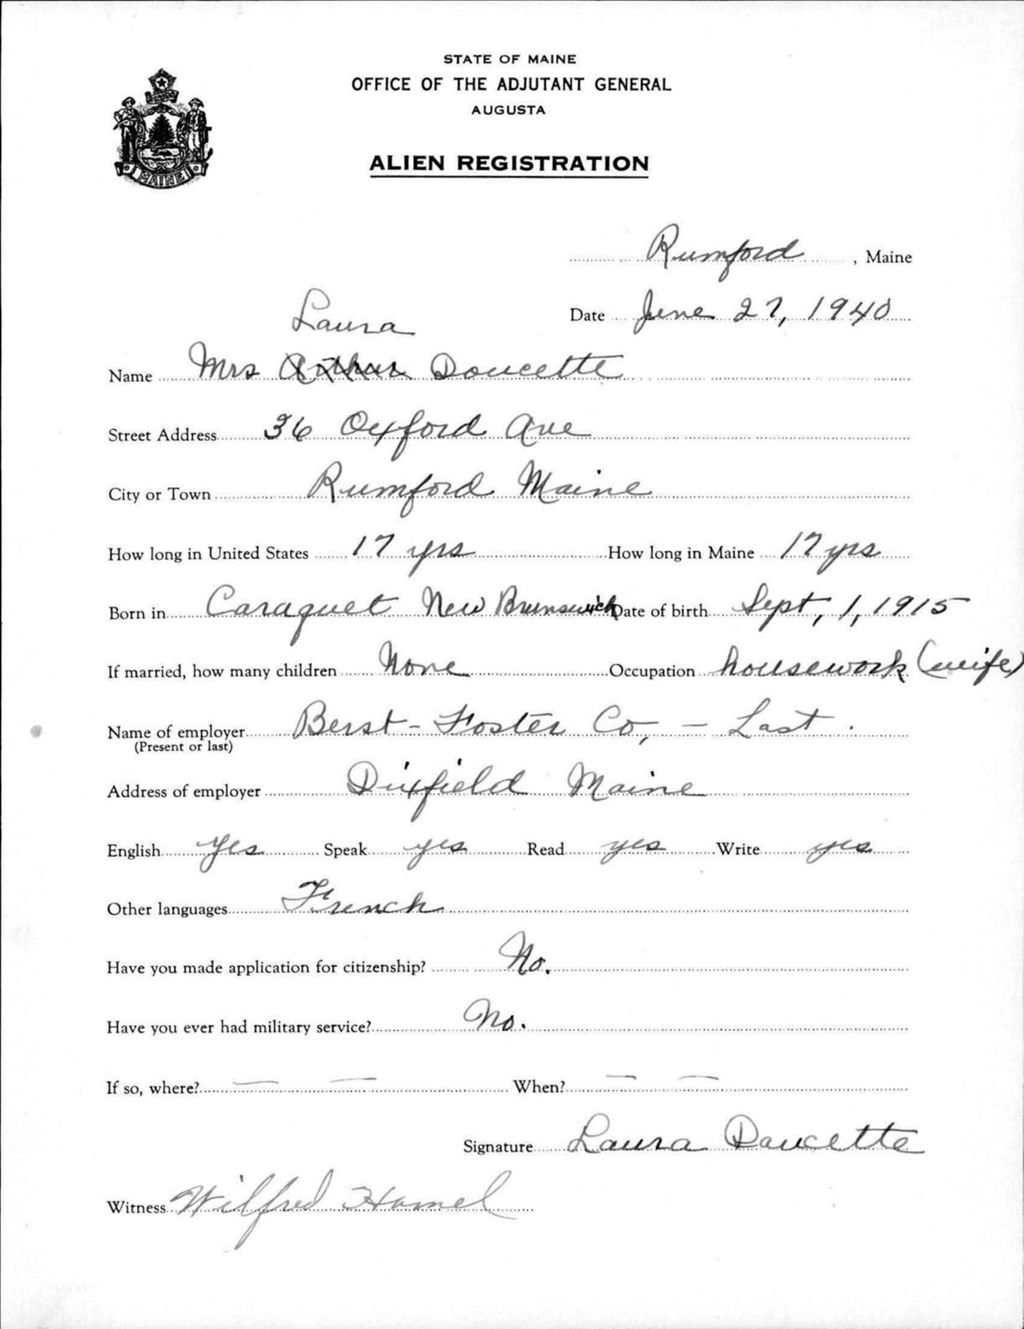 STATE OF MAINE
OFFICE OF THE ADJUTANT GENERAL
AUGUSTA
ALIEN REGISTRATION
MAINE
Rumford, Maine
Date June 27, 1940
Laura
Name Mrs Arthur Doucette
Street Address 36 Oxford Ave
City or Town Rumford Maine
How long in United States 17 yrs How long in Maine 17 yrs
Born in Caraquet New Brunswick Date of birth Sept, 1, 1915
If married, how many children None Occupation housework (wife)
Name of employer Berst-Foster Co, - Last.
(Present or last)
Address of employer Dixfield Maine
English Yes Speak yes Read yes Write yes
Other languages French
Have you made application for citizenship? No.
Have you ever had military service? No.
If so, where? — — When? — —
Signature Laura Doucette
Witness Wilfred Hamel